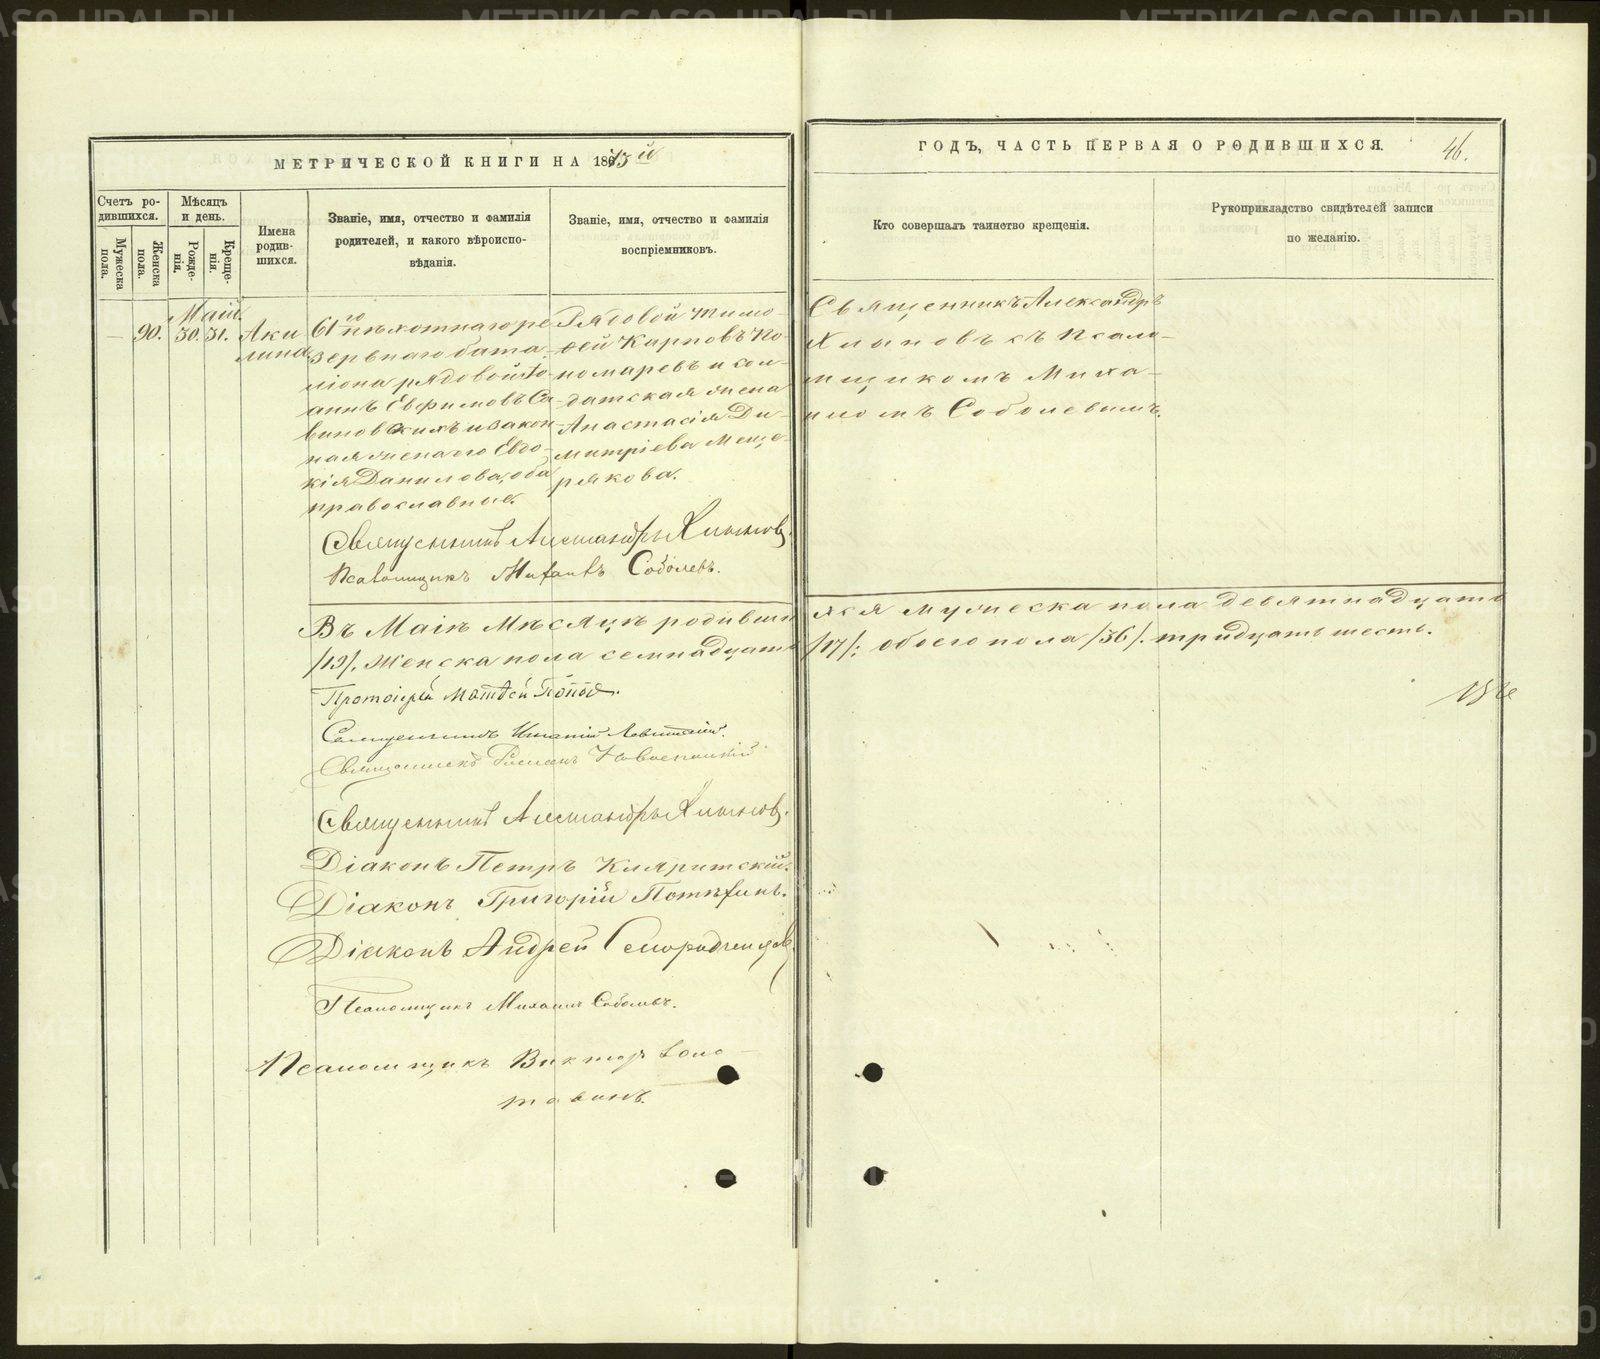 МЕТРИЧЕСКОЙ КНИГИ НА 1873й
ГОДЪ, ЧАСТЬ ПЕРВАЯ О РОДИВШИХСЯ.
46.
Счетъ ро-
дившихся.
Мужеска пола.
Женска пола.
Мѣсяцъ
и день.
Рожде-
нія.
Креще-
нія.
Имена
родив-
шихся.
Званіе, имя, отчество и фамилія
родителей, и какого вѣроиспо-
вѣданія.
Званіе, имя, отчество и фамилія
воспріемниковъ.
Кто совершалъ таинство крещенія.
Рукоприкладство свидѣтелей записи
по желанію.
Май.
— 90. 30. 31.
Аки
лина
61го пѣхотнаго ре
зервнаго бата
ліона рядовой Іо
аннъ Евфимовъ Са
виновскихъ и закон
ная жена его Евдо
кія Данилова, оба
православные.
Рядовой Тимо-
ѳей Карповъ По-
номаревъ и сол-
датская жена
Анастасія Ди-
митріева Меще-
рякова.
Священникъ Александръ
Хлыновъ съ Псало-
мщикомъ Миха-
иломъ Соболевымъ.
Священникъ Александръ Хлыновъ
Псаломщикъ Михаилъ Соболевъ.
Въ Маѣ Мѣсяцѣ родивши
яся мужеска пола девятнадцать
/19/. Женска пола семнадцать
/17/: обоего пола /36/. тридцать шесть.
Протоіерей Матѳей Поповъ.
Священникъ Игнатій Левитскій.
Священникъ Новоспасскій
Священникъ Александръ Хлыновъ.
Діаконъ Петръ Кляритскій.
Діаконъ Григорій Потѣхинъ.
Діаконъ Андрей Смородинцевъ
Псаломщикъ Михаилъ Соболевъ.
Псаломщикъ Викторъ